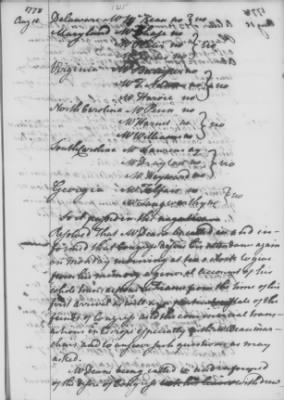 1778
Aug 15
Delaware Mr M Kean no } no
Maryland Mr Chase no
no } no
Virginia
Mr Adams no } no
Mr Harvie no
North Carolina Mr Penn no
Mr Harnet no } no
Mr Williams no
South Carolina Mr Laurens ay
Mr Drayton no } no
Mr Heyward no
Georgia Mr Telfair no
Mr Langworthy } no
So it passed in the negative
Resolved That Mr Deane be called in and in-
formed that Congress desire his attendance again
on Monday morning at ten o'clock to give
from his memory a general account of his
whole transactions in France from the time of his
first arrival as well as a particular state of the
funds of Congress and the commercial trans-
actions in Europe especially with Mr Beaumar-
chais and to answer such questions as may
asked.
Mr Deane being called in and informed
of the desire of Congress withdrew